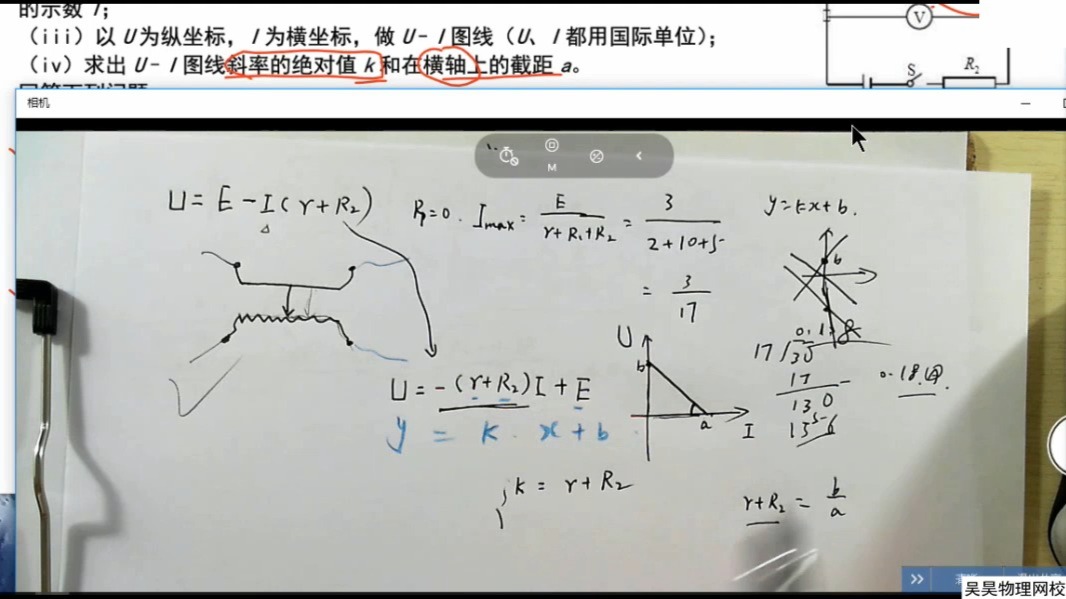 的示数 I；
（iii）以 U为纵坐标，I为横坐标，做 U-I图线（U、I都用国际单位）；
（iv）求出 U-I图线斜率的绝对值 k和在横轴上的截距 a。
V
S
R₂
相机
M
U = E - I(r+R₂)
I max = E/(r+R₁+R₂) = 3/(2+10+5)
= 3/17
y=kx+b.
b
U
b
a
I
U = -(r+R₂)I + E
y = k · x + b
k = r+R₂
r+R₂ = b/a
吴昊物理网校